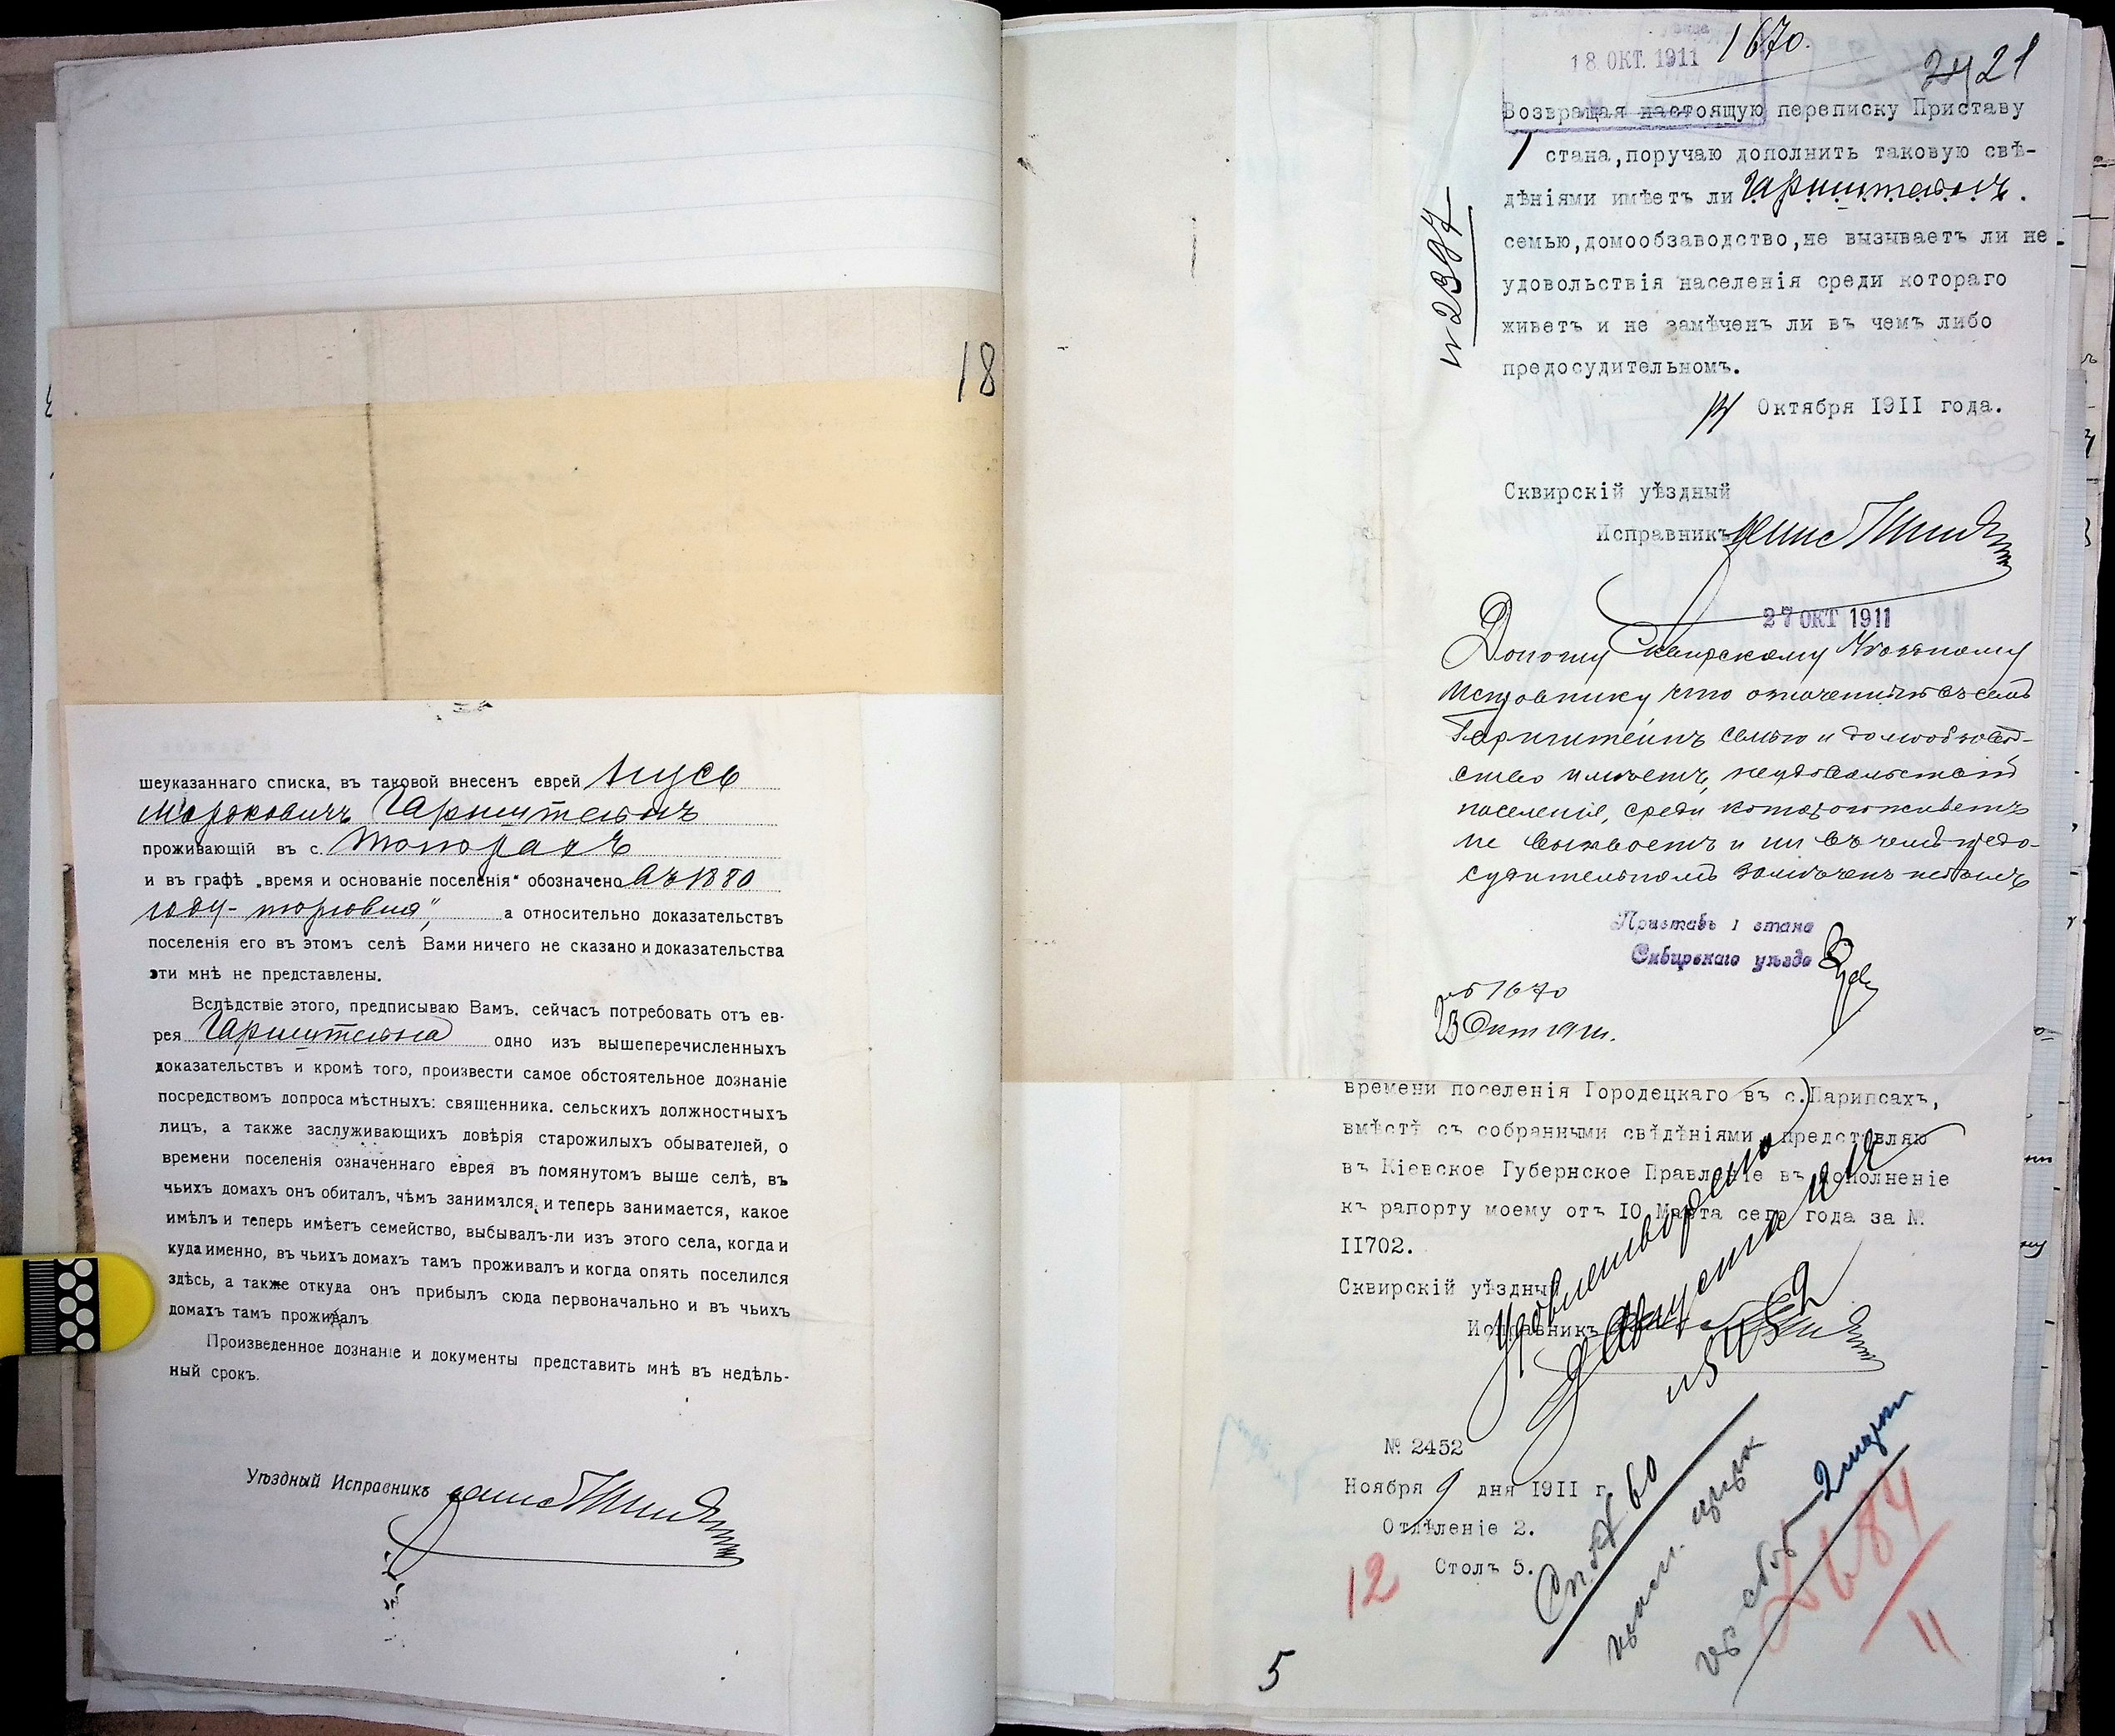 18
шеуказаннаго списка, въ таковой внесенъ еврей
Гарнштейнъ
проживающій въ с. Топорахъ
и въ графѣ „время и основаніе поселенія“ обозначено въ 1880
году - торговля", а относительно доказательствъ
поселенія его въ этомъ селѣ Вами ничего не сказано и доказательства
эти мнѣ не представлены.
Вслѣдствіе этого, предписываю Вамъ. сейчасъ потребовать отъ ев-
рея Гарнштейна одно изъ вышеперечисленныхъ
доказательствъ и кромѣ того, произвести самое обстоятельное дознаніе
посредствомъ допроса мѣстныхъ: священника. сельскихъ должностныхъ
лицъ, а также заслуживающихъ довѣрія старожилыхъ обывателей, о
времени поселенія означеннаго еврея въ помянутомъ выше селѣ, въ
чьихъ домахъ онъ обиталъ, чѣмъ занимался, и теперь занимается, какое
имѣлъ и теперь имѣетъ семейство, выбывалъ-ли изъ этого села, когда и
куда именно, въ чьихъ домахъ тамъ проживалъ и когда опять поселился
здѣсь, а также откуда онъ прибылъ сюда первоначально и въ чьихъ
домахъ тамъ проживалъ
Произведенное дознаніе и документы представить мнѣ въ недѣль-
ный срокъ.
Уѣздный Исправникъ
18 ОКТ. 1911 1670.
21
Возвращая настоящую переписку Приставу
1 стана,поручаю дополнить таковую свѣ-
дѣніями имѣетъ ли Гарнштейнъ.
семью,домообзаводство,не вызываетъ ли не
удовольствія населенія среди котораго
живетъ и не замѣченъ ли въ чемъ либо
предосудительномъ.
14 Октября 1911 года.
№ 2397
Сквирскій уѣздный
Исправникъ
27 ОКТ 1911
Доношу Сквирскому Уѣздному
Исправнику что означенный въ семъ
Гарнштейнъ семью и домообзавод-
ство имѣетъ, неудовольствій
населенія, среди котораго живетъ
не вызываетъ и ни въ чемъ предо-
судительномъ замѣченъ не былъ
Приставъ 1 стана
Сквирскаго уѣзда
№ 1670
23 Окт 1911.
времени поселенія Городецкаго въ с.Парипсахъ,
вмѣстѣ съ собранными свѣдѣніями, представляю
въ Кіевское Губернское Правленіе въ дополненіе
къ рапорту моему отъ 10 Марта сего года за №
11702.
Сквирскій уѣздный
Исправникъ
№ 2452
Ноября 9 дня 1911 г.
Отдѣленіе 2.
Столъ 5.
12
5
11